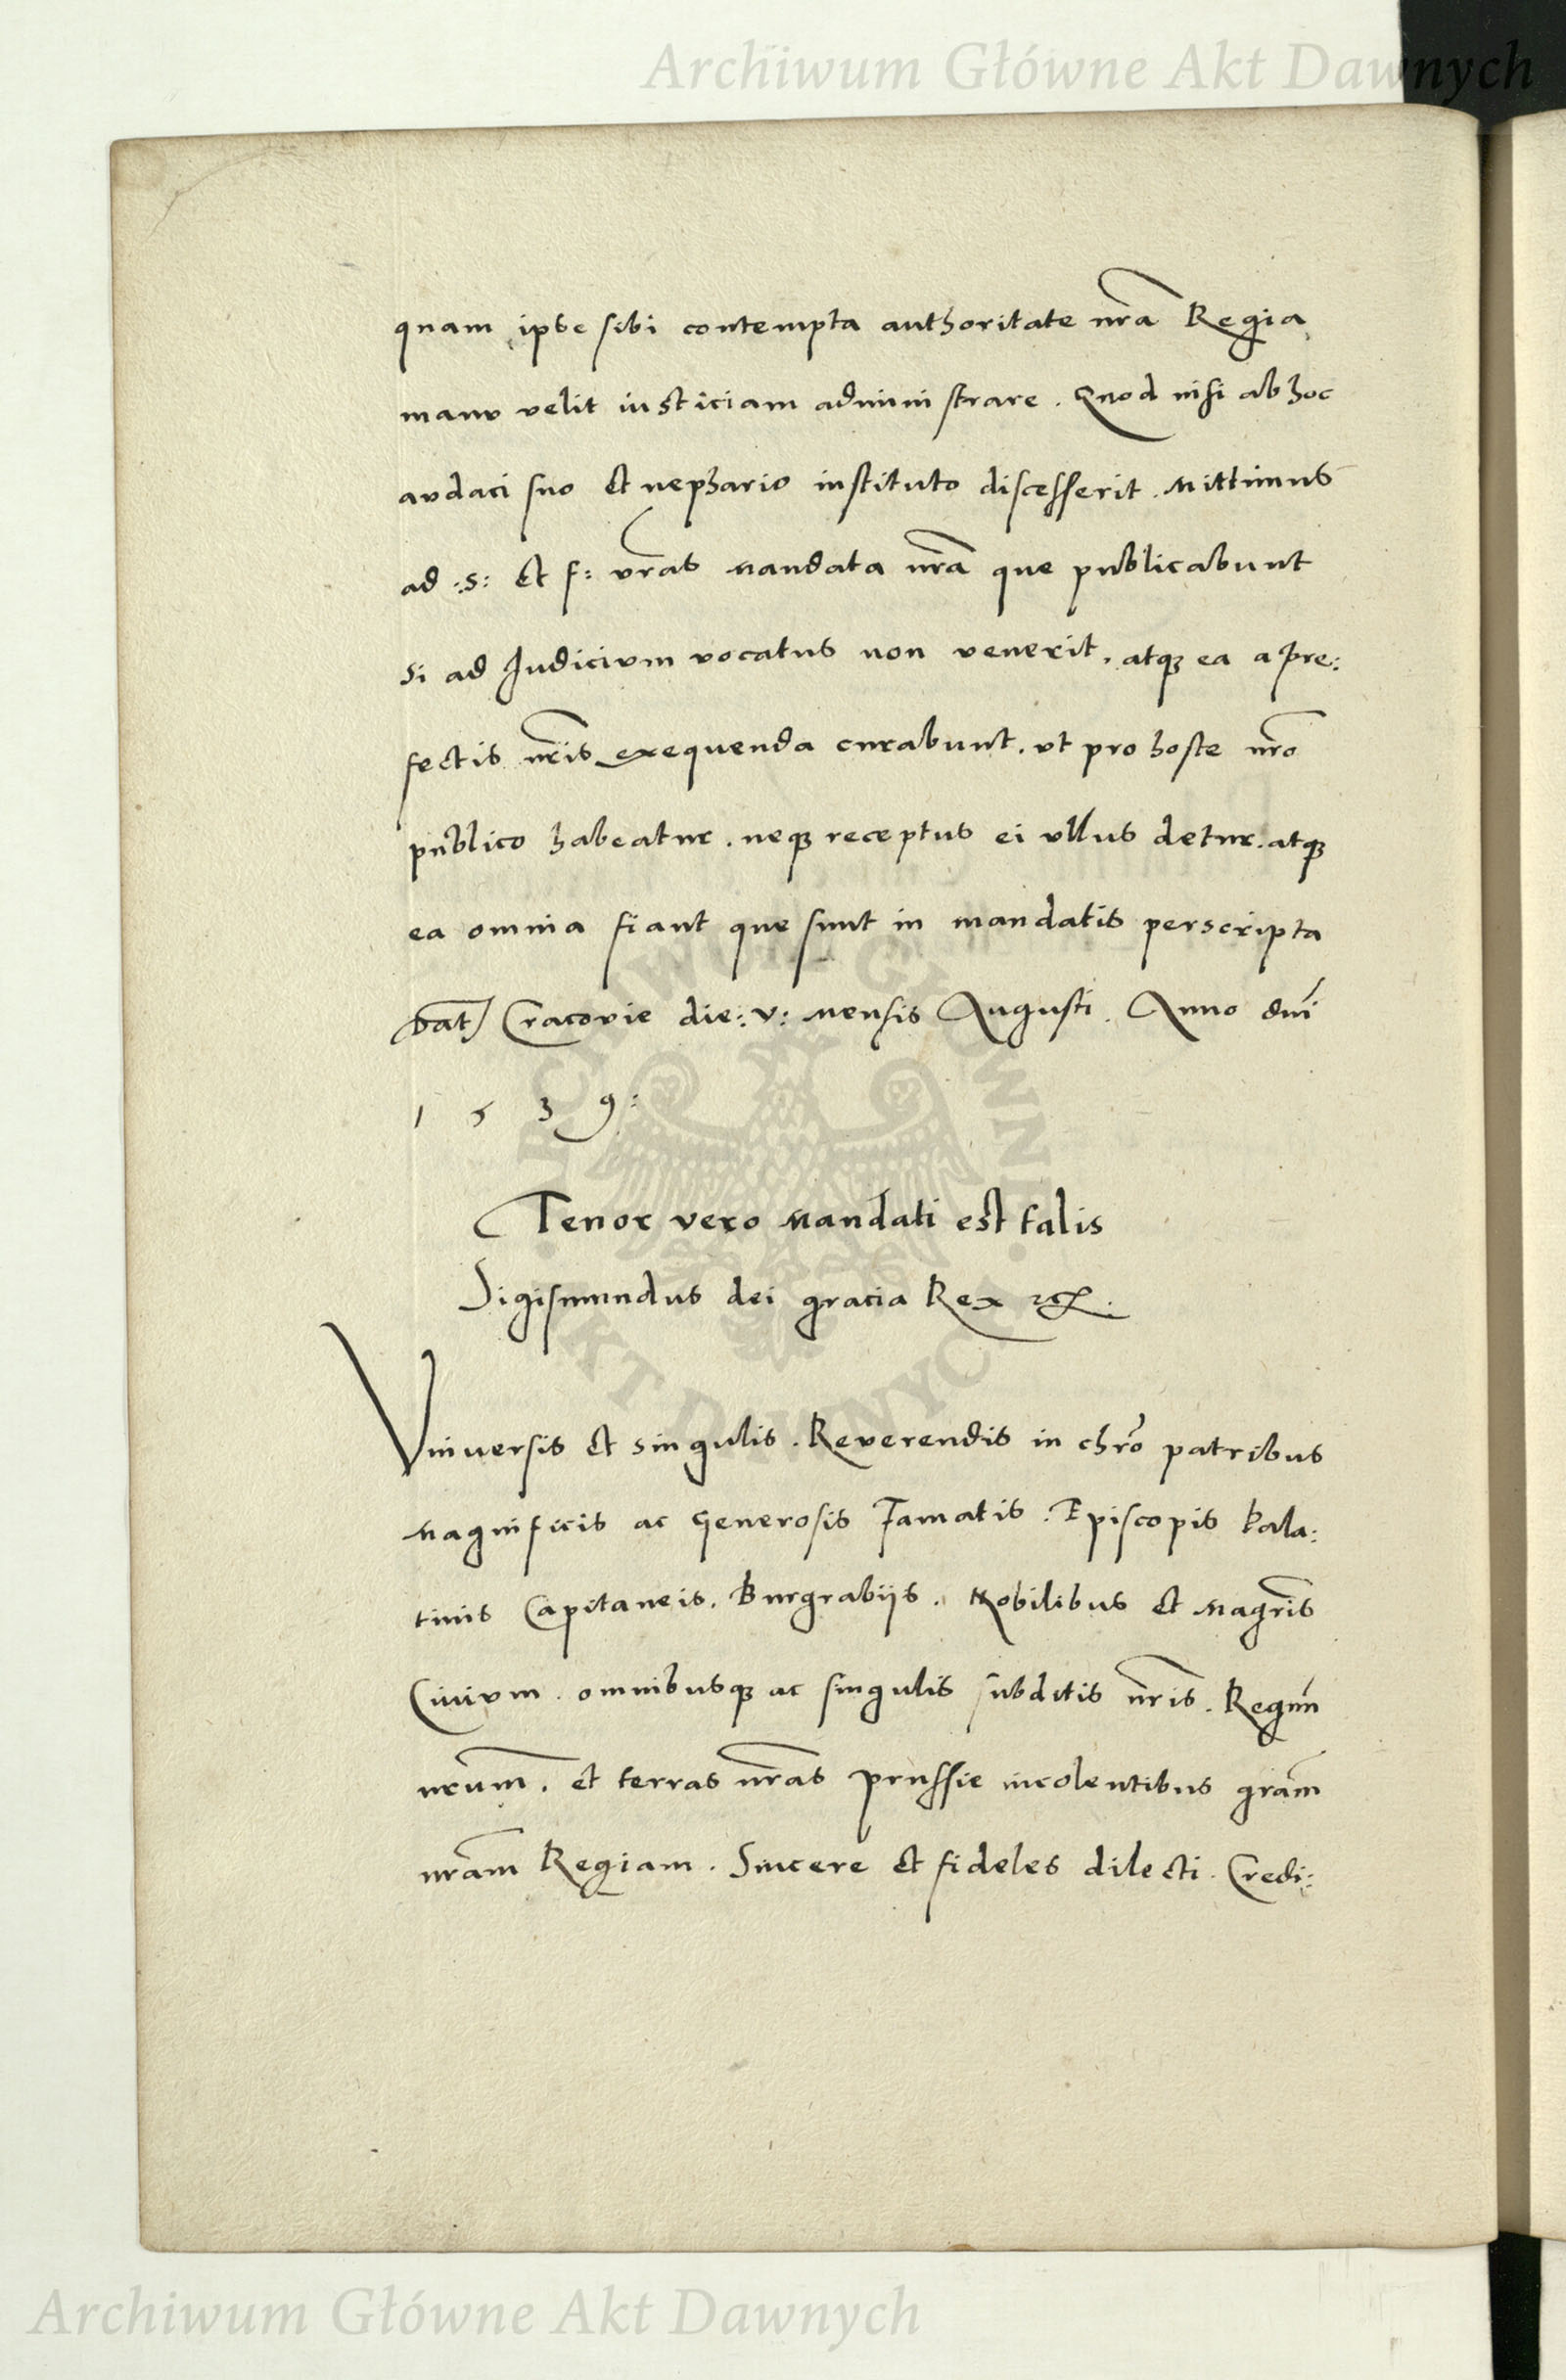 Archiwum Główne Akt Dawnych
quam ipse sibi contempta authoritate nr̃a Regia
manv velit iusticiam administrare. Quod nisi ab hoc
avdaci suo et nephario instituto discesserit. Mittimus
ad :S: et f: vr̃as Mandata nr̃a que publicabunt
Si ad Iudicivm vocatus non venerit. atqȝ ea a pre:
fectis nr̃is exequenda curabunt. vt pro hoste nr̃o
publico habeatur. neqȝ receptus ei vllus detur. atqȝ
ea omnia fiant que sunt in mandatis perscripta
Dat̃ Cracovie die: v: Mensis Augusti. Anno dn̄i
1 5 3 9:
Tenor vero Mandati est talis
Sigismundus dei gracia Rex etc.
Vniuersis et singulis. Reverendis in chr̃o patribus
Magnificis ac Generosis Famatis. Episcopis Pala:
tinis Capitaneis. Burgrabijs. Nobilibus et Magr̃is
Civivm. omnibusqȝ ac singulis subditis nr̃is. Regnũ
nr̃um. et terras nr̃as prussie incolentibus gr̃am
nr̃am Regiam. Sincere et fideles dilecti. Credi:
ARCHIWUM GŁÓWNE AKT DAWNYCH
Archiwum Główne Akt Dawnych